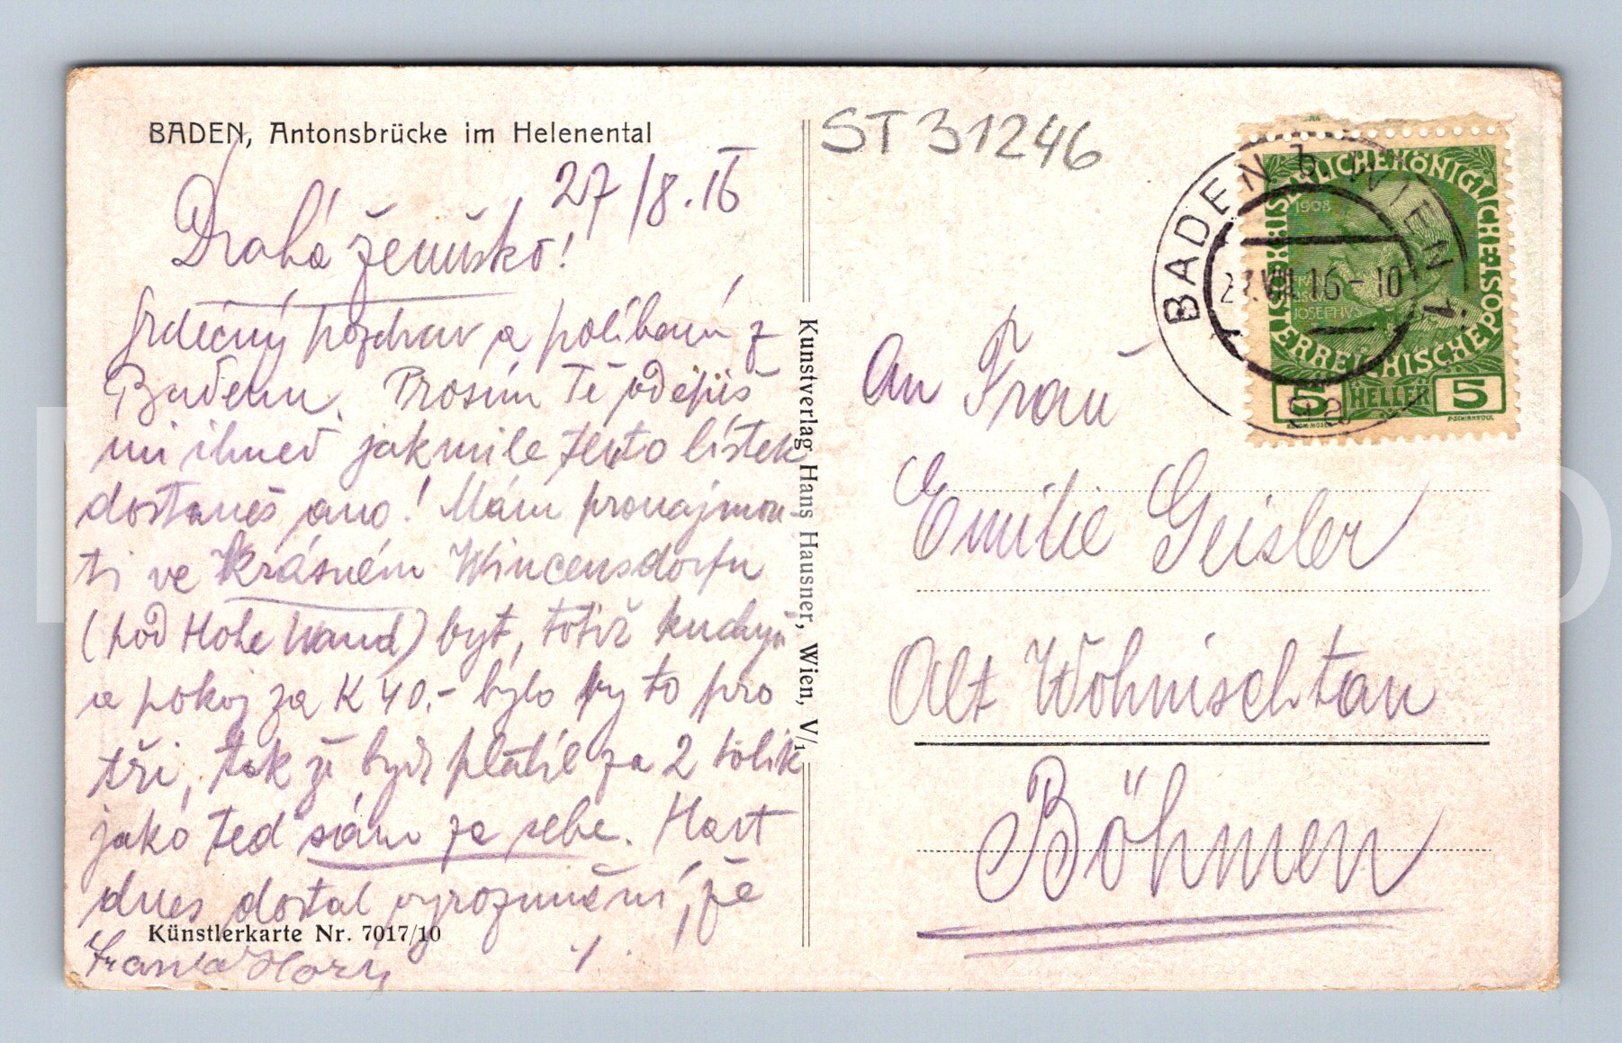 BADEN, Antonsbrücke im Helenental
ST 31246
27/8.16
Drahá ženuško!
Srdečný pozdrav a políbení z
Badenu. Prosím Tě odepiš
mi ihned jakmile tento lístek
dostaneš ano! Mám pronajmou-
ti ve krásném Wincensdorfu
(pod Hohe Wand) byt, totiž kuchyň
a pokoj za K 40.- bylo by to pro
tři, tak že bych platil za 2 tolik
jako teď sám za sebe. Hart
dnes dostal vyrozumění, že
Künstlerkarte Nr. 7017/10
Kunstverlag Hans Hausner, Wien, V/1
BADEN b. WIEN 1
27.VIII.16-10
KAISERLICHE KÖNIGLICHE ÖSTERREICHISCHE POST
1908
JOSEPHVS
5 HELLER 5
An Frau
Emilie Geisler
Alt Wohnischtan
Böhmen